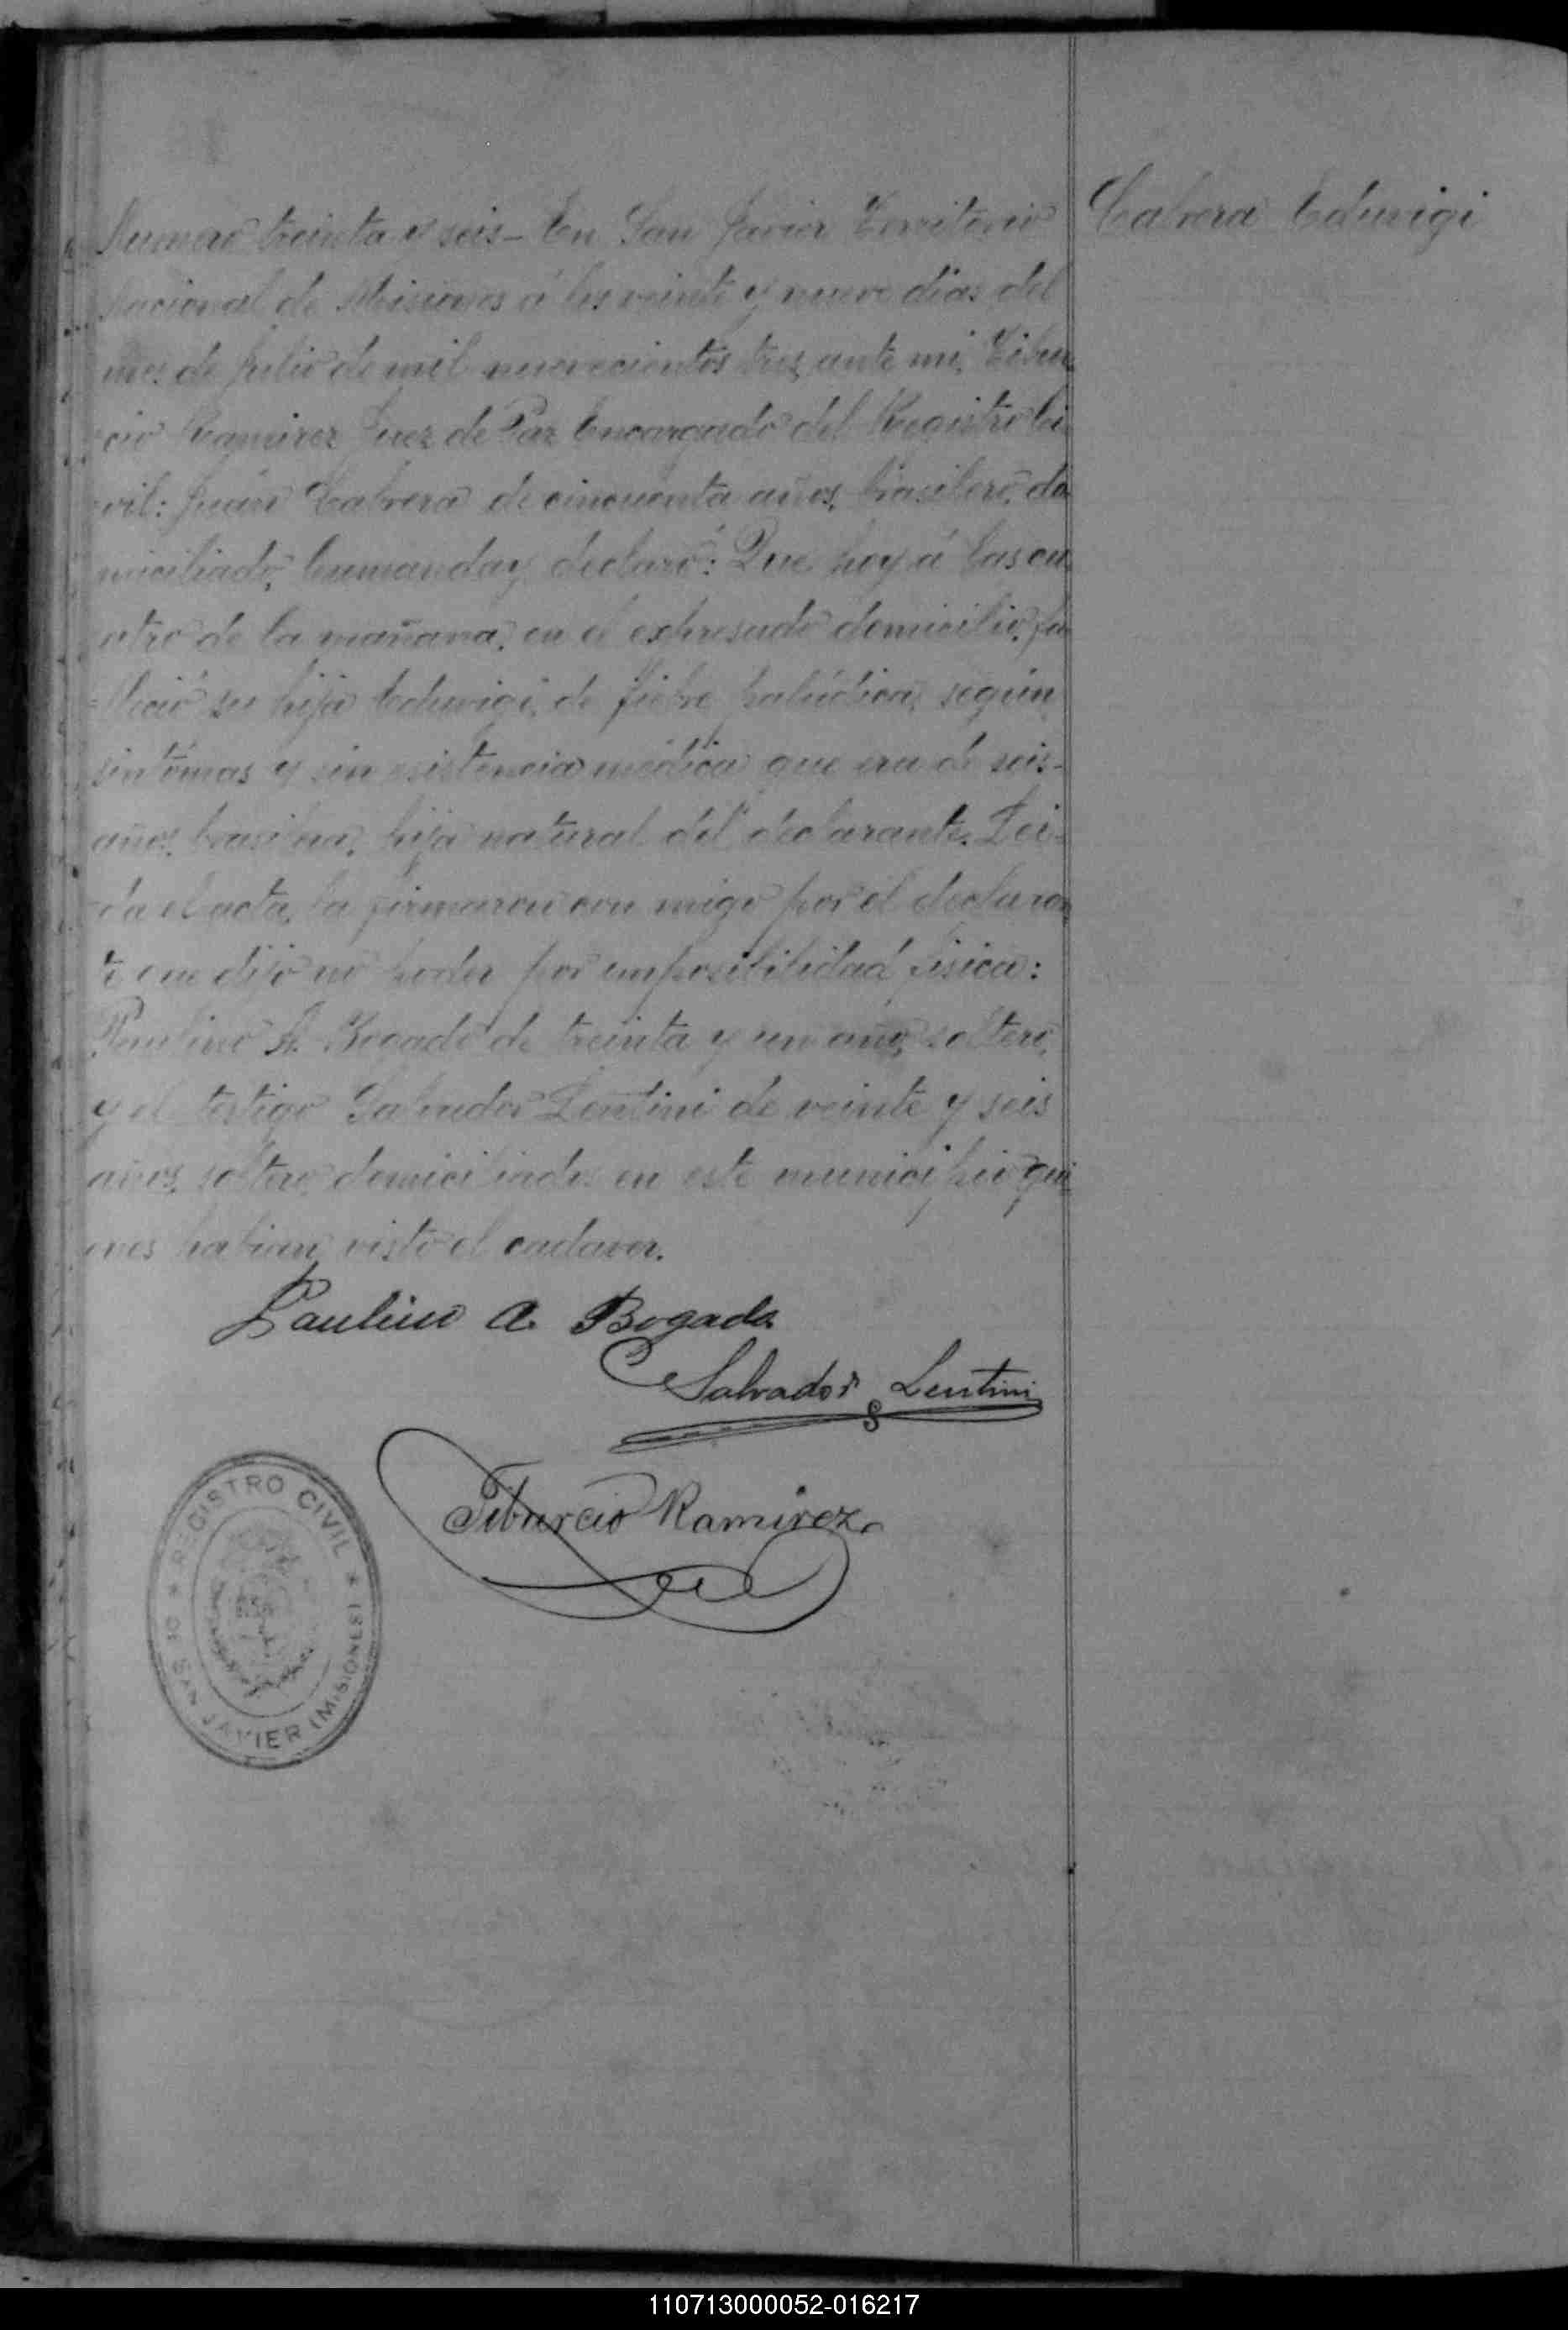 Cabrera Eduvigi
Numero treinta y seis — En San Javier Territorio
Nacional de Misiones á los veinte y nueve dias del
mes de Julio de mil nuevecientos tres, ante mi, Tibur
cio Ramirez Juez de Paz Encargado del Registro Ci
vil: Juan Cabrera de cincuenta años, brasilero, do
miciliado, Cumanday, declaró: Que hoy á las cu
atro de la mañana, en el expresado domicilio, fa
lleció su hija Eduvigi, de fiebre palúdica, según
sintómas y sin asistencia médica que era de seis
años, brasilera, hija natural del declarante. Lei-
da el acta, la firmaron con migo por el declaran
te que dijo no poder por imposibilidad fisica:
Paulino A. Bogado de treinta y un año, soltero,
y el testigo Salvador Lentini de veinte y seis
años, soltero, domiciliados en este municipio qui
enes habian visto el cadaver.
Paulino A. Bogado
Salvador Lentini
Tiburcio Ramirez
REGISTRO CIVIL
DE SAN JAVIER (MISIONES)
110713000052-016217